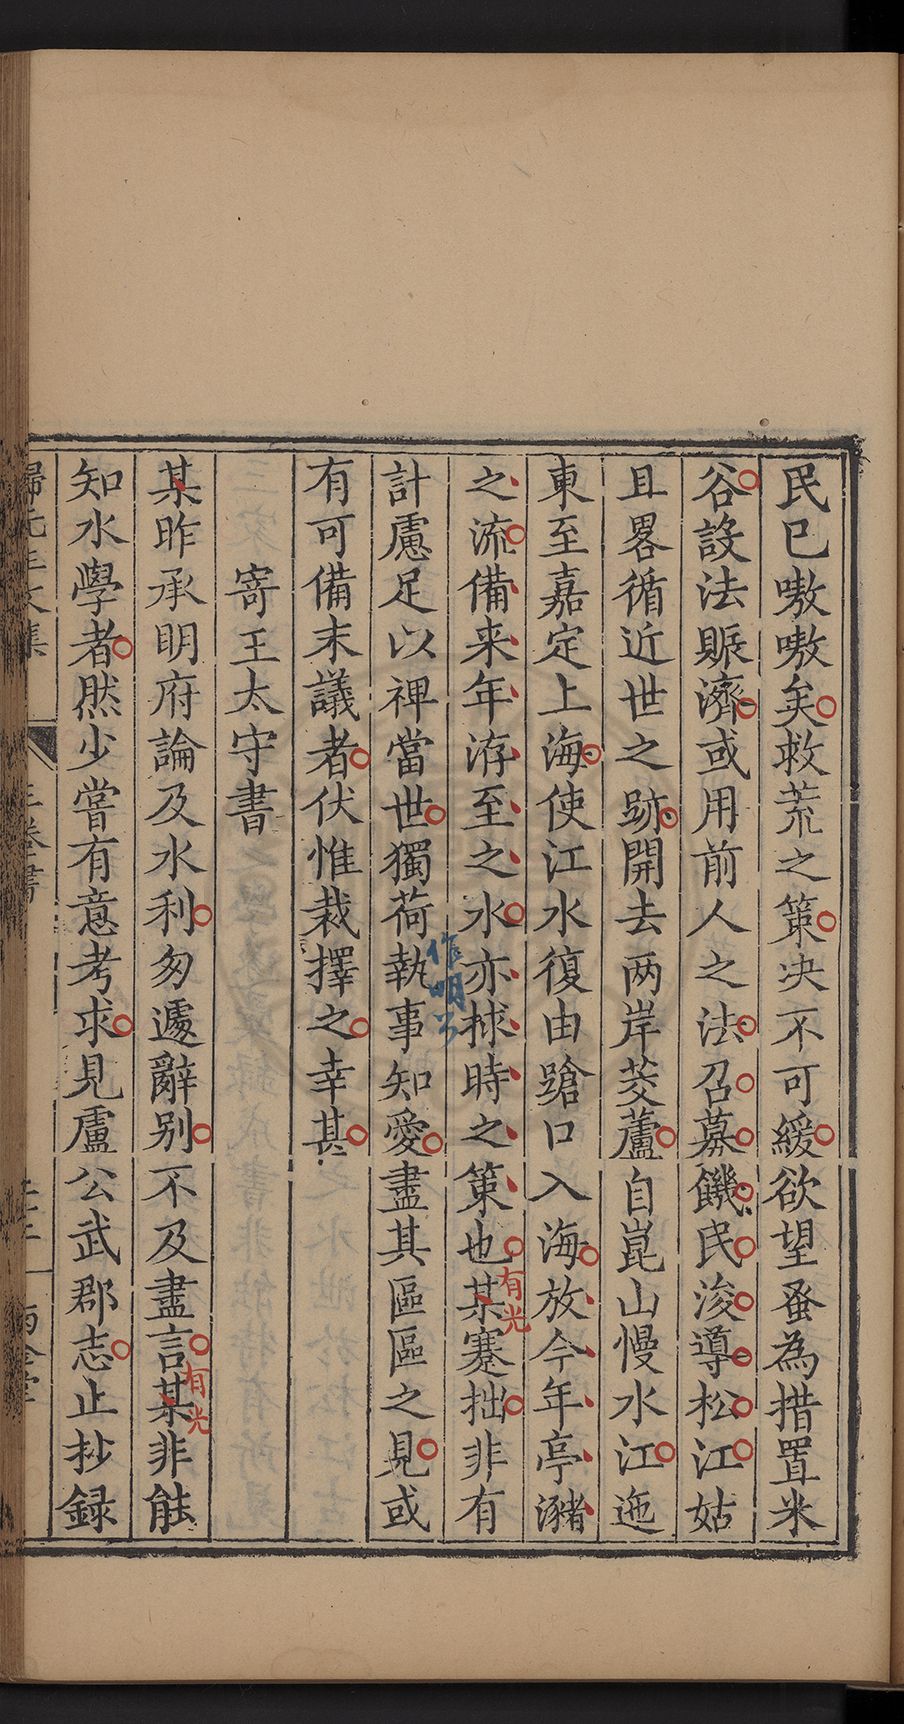 民已嗷嗷矣救荒之策决不可緩欲望蚤為措置米
谷設法賑濟或用前人之法召募饑民浚導松江姑
且畧循近世之跡開去两岸茭蘆自崑山慢水江迤
東至嘉定上海使江水復由蹌口入海放今年亭瀦
之流備来年洊至之水亦捄時之策也某蹇拙非有
有光
計慮足以裨當世獨荷執事知愛盡其區區之見或
作明公
有可備末議者伏惟裁擇之幸甚
寄王太守書
某昨承明府論及水利匆遽辭别不及盡言某非能
有光
知水學者然少嘗有意考求見盧公武郡志止抄録